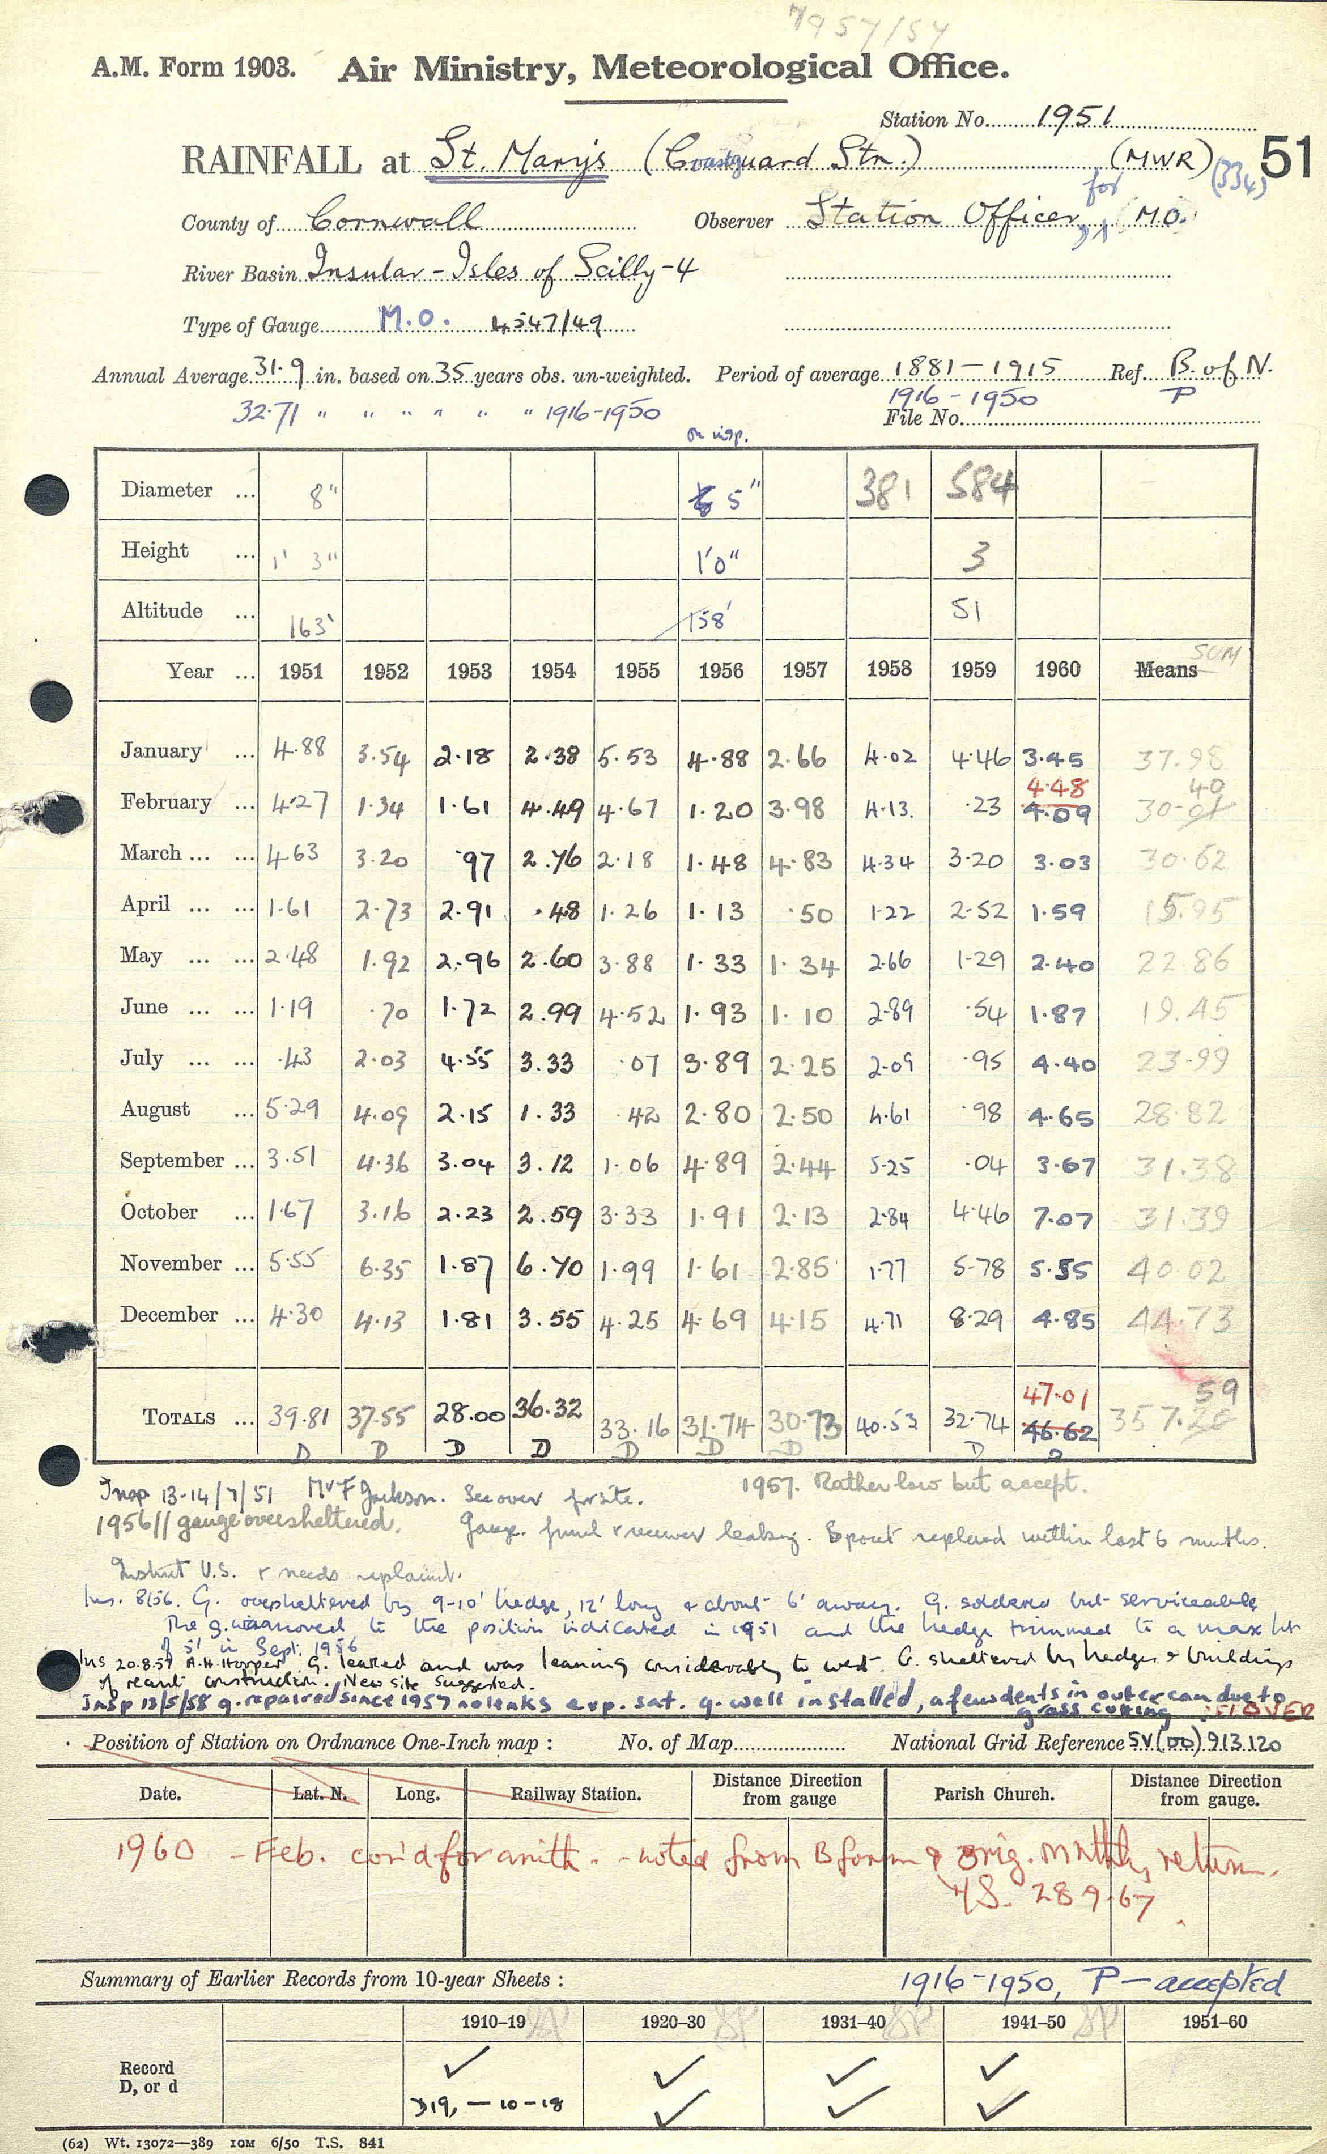 7957/54
A.M. Form 1903. Air Ministry, Meteorological Office.
Station No. 1951
RAINFALL at St. Mary's (Coastguard Stn.) (MWR) (334) 51
for
County of Cornwall Observer Station Officer, M.O.
River Basin Insular - Isles of Scilly - 4
Type of Gauge M.O. 4547/49
Annual Average 31.9 in. based on 35 years obs. un-weighted. Period of average 1881-1915 Ref. B. of N.
32.71 " " " " " " 1916-1950 1916-1950 P
File No.
on insp.
Diameter ... 8" 5" 381 584
Height ... 1' 3" 1'0" 3
Altitude ... 163' 158' 51
SUM
Year ... 1951 1952 1953 1954 1955 1956 1957 1958 1959 1960 Means
January ... 4.88 3.54 2.18 2.38 5.53 4.88 2.66 4.02 4.46 3.45 37.98
4.48 40
February ... 4.27 1.34 1.61 4.49 4.67 1.20 3.98 4.13 .23 4.09 30.01
March ... ... 4.63 3.20 .97 2.76 2.18 1.48 4.83 4.34 3.20 3.03 30.62
April ... ... 1.61 2.73 2.91 .48 1.26 1.13 .50 1.22 2.52 1.59 15.95
May ... ... 2.48 1.92 2.96 2.60 3.88 1.33 1.34 2.66 1.29 2.40 22.86
June ... ... 1.19 .70 1.72 2.99 4.52 1.93 1.10 2.89 .54 1.87 19.45
July ... ... .43 2.03 4.55 3.33 .07 3.89 2.25 2.09 .95 4.40 23.99
August ... 5.29 4.09 2.15 1.33 .42 2.80 2.50 4.61 .98 4.65 28.82
September ... 3.51 4.36 3.04 3.12 1.06 4.89 2.44 5.25 .04 3.67 31.38
October ... 1.67 3.16 2.23 2.59 3.33 1.91 2.13 2.84 4.46 7.07 31.39
November ... 5.55 6.35 1.87 6.70 1.99 1.61 2.85 1.77 5.78 5.55 40.02
December ... 4.30 4.13 1.81 3.55 4.25 4.69 4.15 4.71 8.29 4.85 44.73
47.01 59
TOTALS ... 39.81 37.55 28.00 36.32 33.16 31.74 30.73 40.53 32.74 46.62 357.20
D D D D D D D D D
Insp 13-14/7/51 Mr F Jackson. See over for site. 1957. Rather low but accept.
1956 // gauge oversheltered. Gauge. funnel & receiver leaking. Spout replaced within last 6 months.
Instrut U.S. & needs replacmt.
Ins. 8/56. G. oversheltered by 9-10' hedge, 12' long & about 6' away. G. soldered but serviceable
The g. was moved to the position indicated in 1951 and the hedge trimmed to a max ht
of 5' in Sept. 1956
Ins 20.8.57 A.H. Hooper G. leaked and was leaning considerably to west. G. sheltered by hedges & buildings
of recent construction. New site suggested.
Insp 13/5/58 g. repaired since 1957 no leaks exp. sat. g. well installed, a few dents in outer can due to
grass cutting OVER
Position of Station on Ordnance One-Inch map : No. of Map National Grid Reference SV(00) 913.120
Date. Lat. N. Long. Railway Station. Distance Direction from gauge Parish Church. Distance Direction from gauge.
1960 - Feb. cor'd for arith. - noted from B form & orig. mnthly return.
28 9.67
Summary of Earlier Records from 10-year Sheets : 1916-1950, P - accepted
1910-19 1920-30 1931-40 1941-50 1951-60
Record ✓ ✓ ✓ ✓
D, or d D19, -10-18 ✓ ✓ ✓
(62) Wt. 13072—389 10M 6/50 T.S. 841